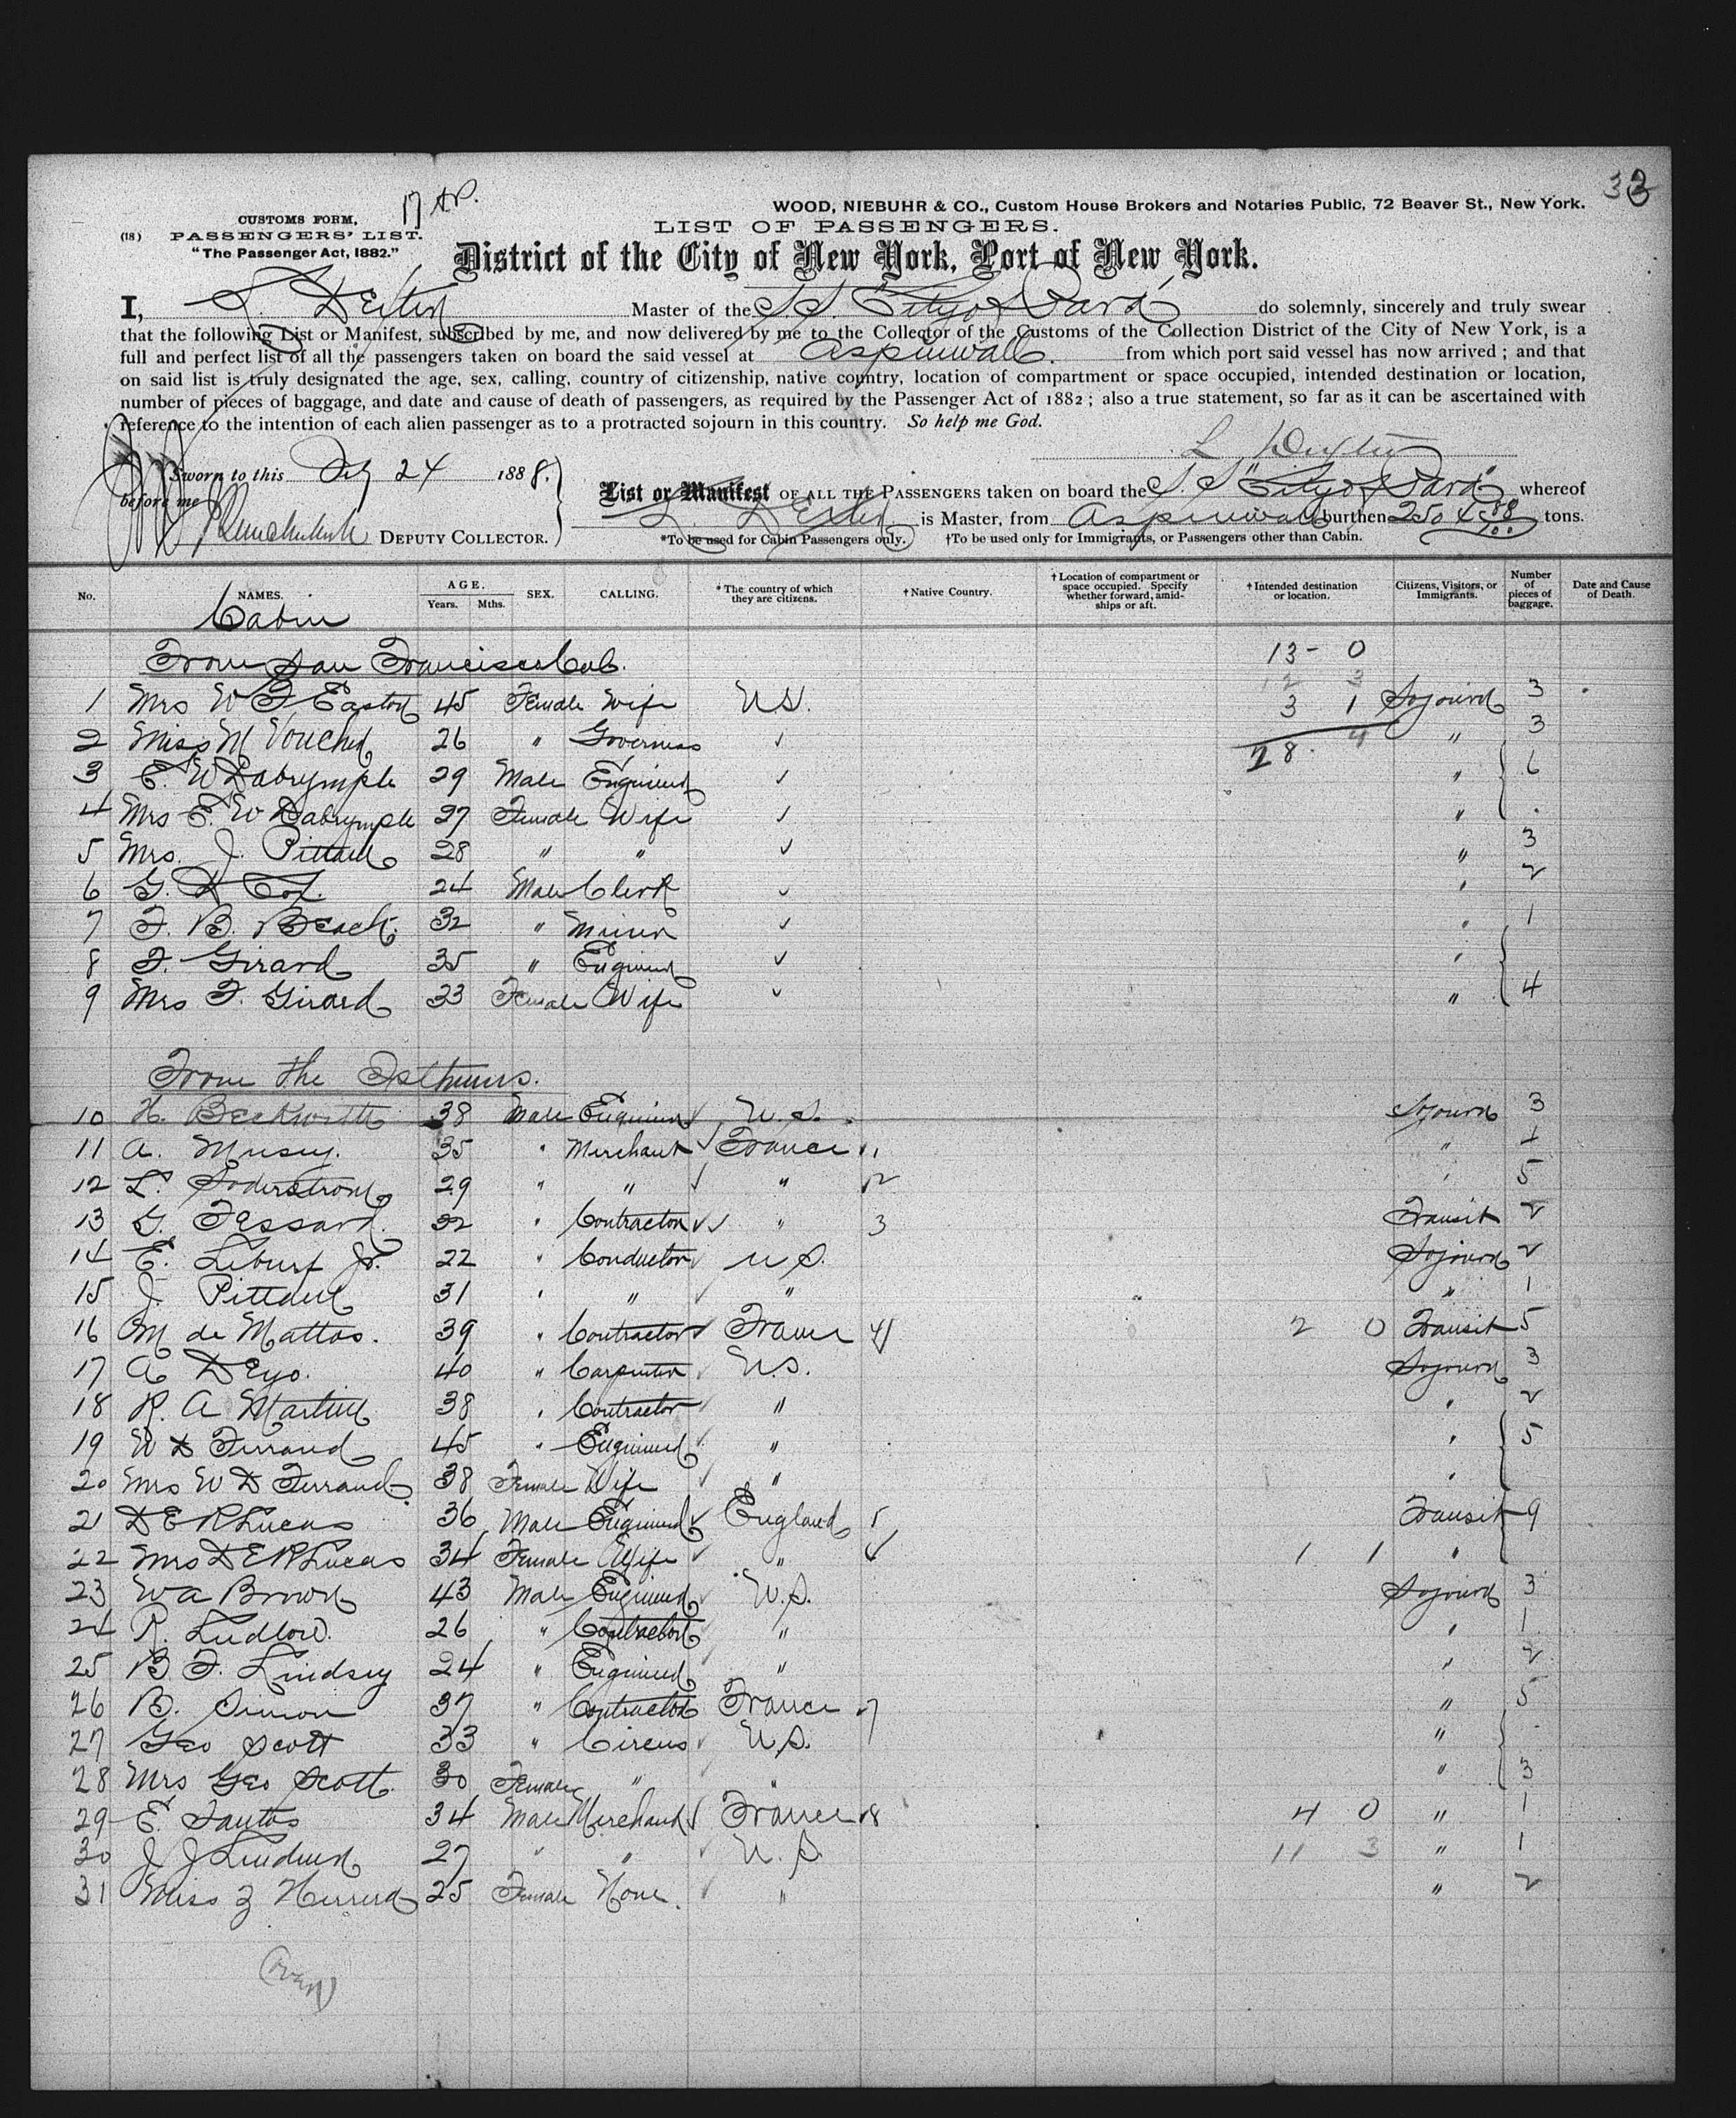 33
17 AP.
WOOD, NIEBUHR & CO., Custom House Brokers and Notaries Public, 72 Beaver St., New York.
CUSTOMS FORM,
(18) PASSENGERS' LIST.
"The Passenger Act, 1882."
LIST OF PASSENGERS.
District of the City of New York, Port of New York.
I, L. Dexter Master of the S.S. "City of Para" do solemnly, sincerely and truly swear
that the following List or Manifest, subscribed by me, and now delivered by me to the Collector of the Customs of the Collection District of the City of New York, is a
full and perfect list of all the passengers taken on board the said vessel at Aspinwall. from which port said vessel has now arrived ; and that
on said list is truly designated the age, sex, calling, country of citizenship, native country, location of compartment or space occupied, intended destination or location,
number of pieces of baggage, and date and cause of death of passengers, as required by the Passenger Act of 1882 ; also a true statement, so far as it can be ascertained with
reference to the intention of each alien passenger as to a protracted sojourn in this country. So help me God.
L. Dexter
Sworn to this 24 1888.
before me
DEPUTY COLLECTOR.
List or Manifest OF ALL THE PASSENGERS taken on board the S.S. "City of Para" whereof
L. Dexter is Master, from Aspinwall burthen 2504 88/100 tons.
*To be used for Cabin Passengers only. †To be used only for Immigrants, or Passengers other than Cabin.
No. NAMES. AGE. Years. Mths. SEX. CALLING. *The country of which they are citizens. †Native Country. †Location of compartment or space occupied. Specify whether forward, amidships or aft. †Intended destination or location. Citizens, Visitors, or Immigrants. Number of pieces of baggage. Date and Cause of Death.
Cabin
From San Francisco Cal. 13 - 0
12 3
1 Mrs W F Easton 45 Female Wife U.S. 3 1 Sojourn 3
2 Miss M 26 " Governess ✓ 28. 4 " 3
3 E. W Dalrymple 29 Male Engineer ✓ " 6
4 Mrs E. W Dalrymple 27 Female Wife ✓ "
5 Mrs. J. Pittaw 28 " " ✓ " 3
6 G. D Cox. 24 Male Clerk ✓ " 2
7 F. B. Beach. 32 " Miner ✓ " 1
8 F. Girard 35 " Engineer ✓ "
9 Mrs F. Girard 33 Female Wife ✓ " 4
From the Isthmus.
10 H. Beckwith 38 Male Engineer ✓ U.S. Sojourn 3
11 A. Musey. 35 " Merchant ✓ France 1 " 1
12 L. Soderstrom 29 " " ✓ " 2 " 5
13 G. Fessard. 32 " Contractor ✓✓ " 3 Transit 2
14 E. Jr. 22 " Conductor ✓ U.S. Sojourn 2
15 J. Pittaw 31 " " ✓ " " 1
16 M de Mattos. 39 " Contractor ✓ France 4 2 0 Transit 5
17 A Deyo. 40 " Carpenter ✓ U.S. Sojourn 3
18 R. A Martin 38 " Contractor ✓ " " 2
19 W D Ferrand 45 " Engineer ✓ " " 5
20 Mrs W D Ferrand 38 Female Wife ✓ " "
21 D E R Lucas 36 Male Engineer ✓ England 5 Transit 9
22 Mrs D E R Lucas 34 Female Wife ✓ " 6 1 1 "
23 W A Brown 43 Male Engineer ✓ U.S. Sojourn 3
24 R. Ludlow. 26 " Contractor ✓ " " 1
25 B. F. Lindsey 24 " Engineer ✓ " " 2
26 B. Simon 37 " Contractor France 7 " 5
27 Geo Scott 33 " Circus ✓ U.S. "
28 Mrs Geo Scott. 30 Female " ✓ " " 3
29 E. Santos 34 Male Merchant ✓ France 8 4 0 " 1
30 J J 27 " " ✓ U.S. 11 3 " 1
31 Miss Z Herrera 25 Female None. ✓ " " 2
(over)